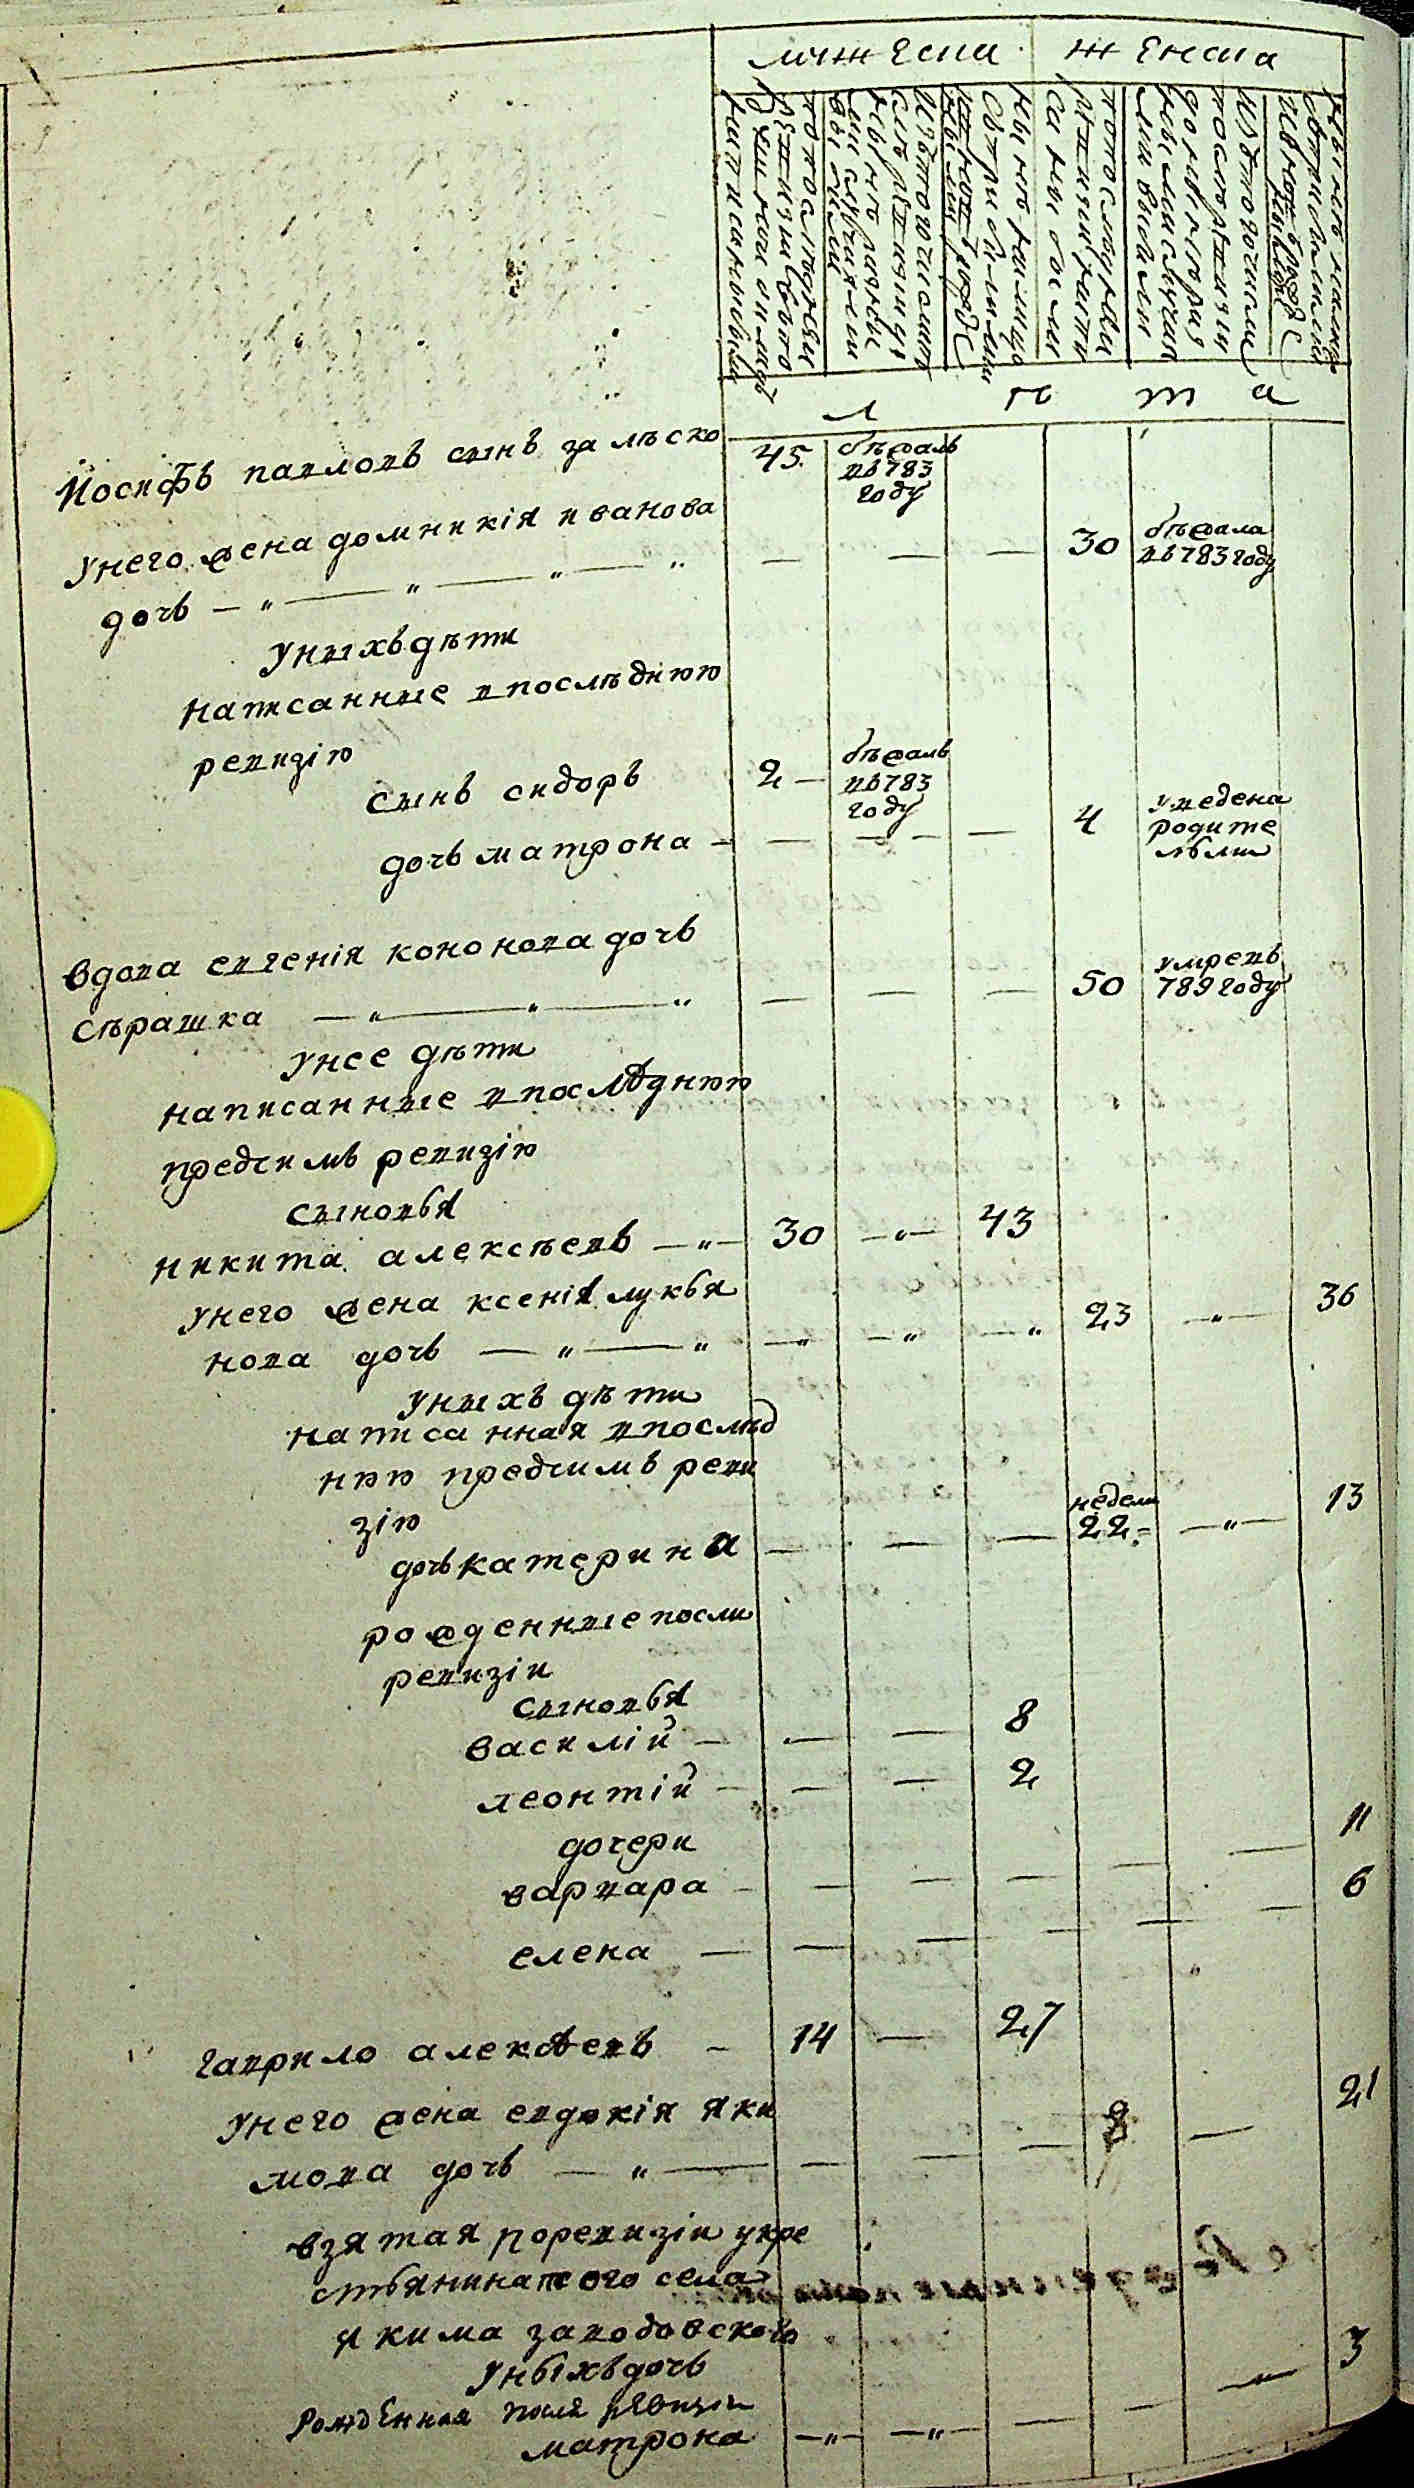 мужеска женска
л ѣ т а
Йосифъ павловъ сынъ залѣско 45. бѣжалъ
въ 783
году
Унего жена домникія иванова
дочь — „ — „ — „ — — — 30 бѣжала
въ 783 году
Уныхъ дѣти
написанные впослѣднюю
ревизію
сынъ сидоръ 2 — бѣжалъ
въ 783
году
дочь матрона — — — — — 4 уведена
родите
лѣми
вдова евгенія кононова дочь
сѣрашка — „ — „ — „ — — — 50 умре въ
789 году
Унее дѣти
написанные впослѣднюю
предсимъ ревизію
сыновья
никита алексѣевъ — „ — 30 — „ — 43
Унего жена ксенія лукья
нова дочь — „ — „ — „ — „ — „ 23 — „ — 36
Уныхъ дѣти
написанная впослѣд
нюю предсимъ реви
зію
дочь катерина — — — недели
22 — „ — 13
рожденные посли
ревизіи
сыновья
василій — — — 8
леонтій — — — 2
дочери
варвара — — — — — — 11
елена — — — — — — 6
гаврило алексѣевъ — 14 — 27
Унего жена евдокія яки
мова дочь — „ — — — — 8 — 21
взятая поревизіи укре
стьянина того села
якима заводовского
Уныхъ дочь
рожденная посля ревизіи
матрона — „ — — „ — — — — 3